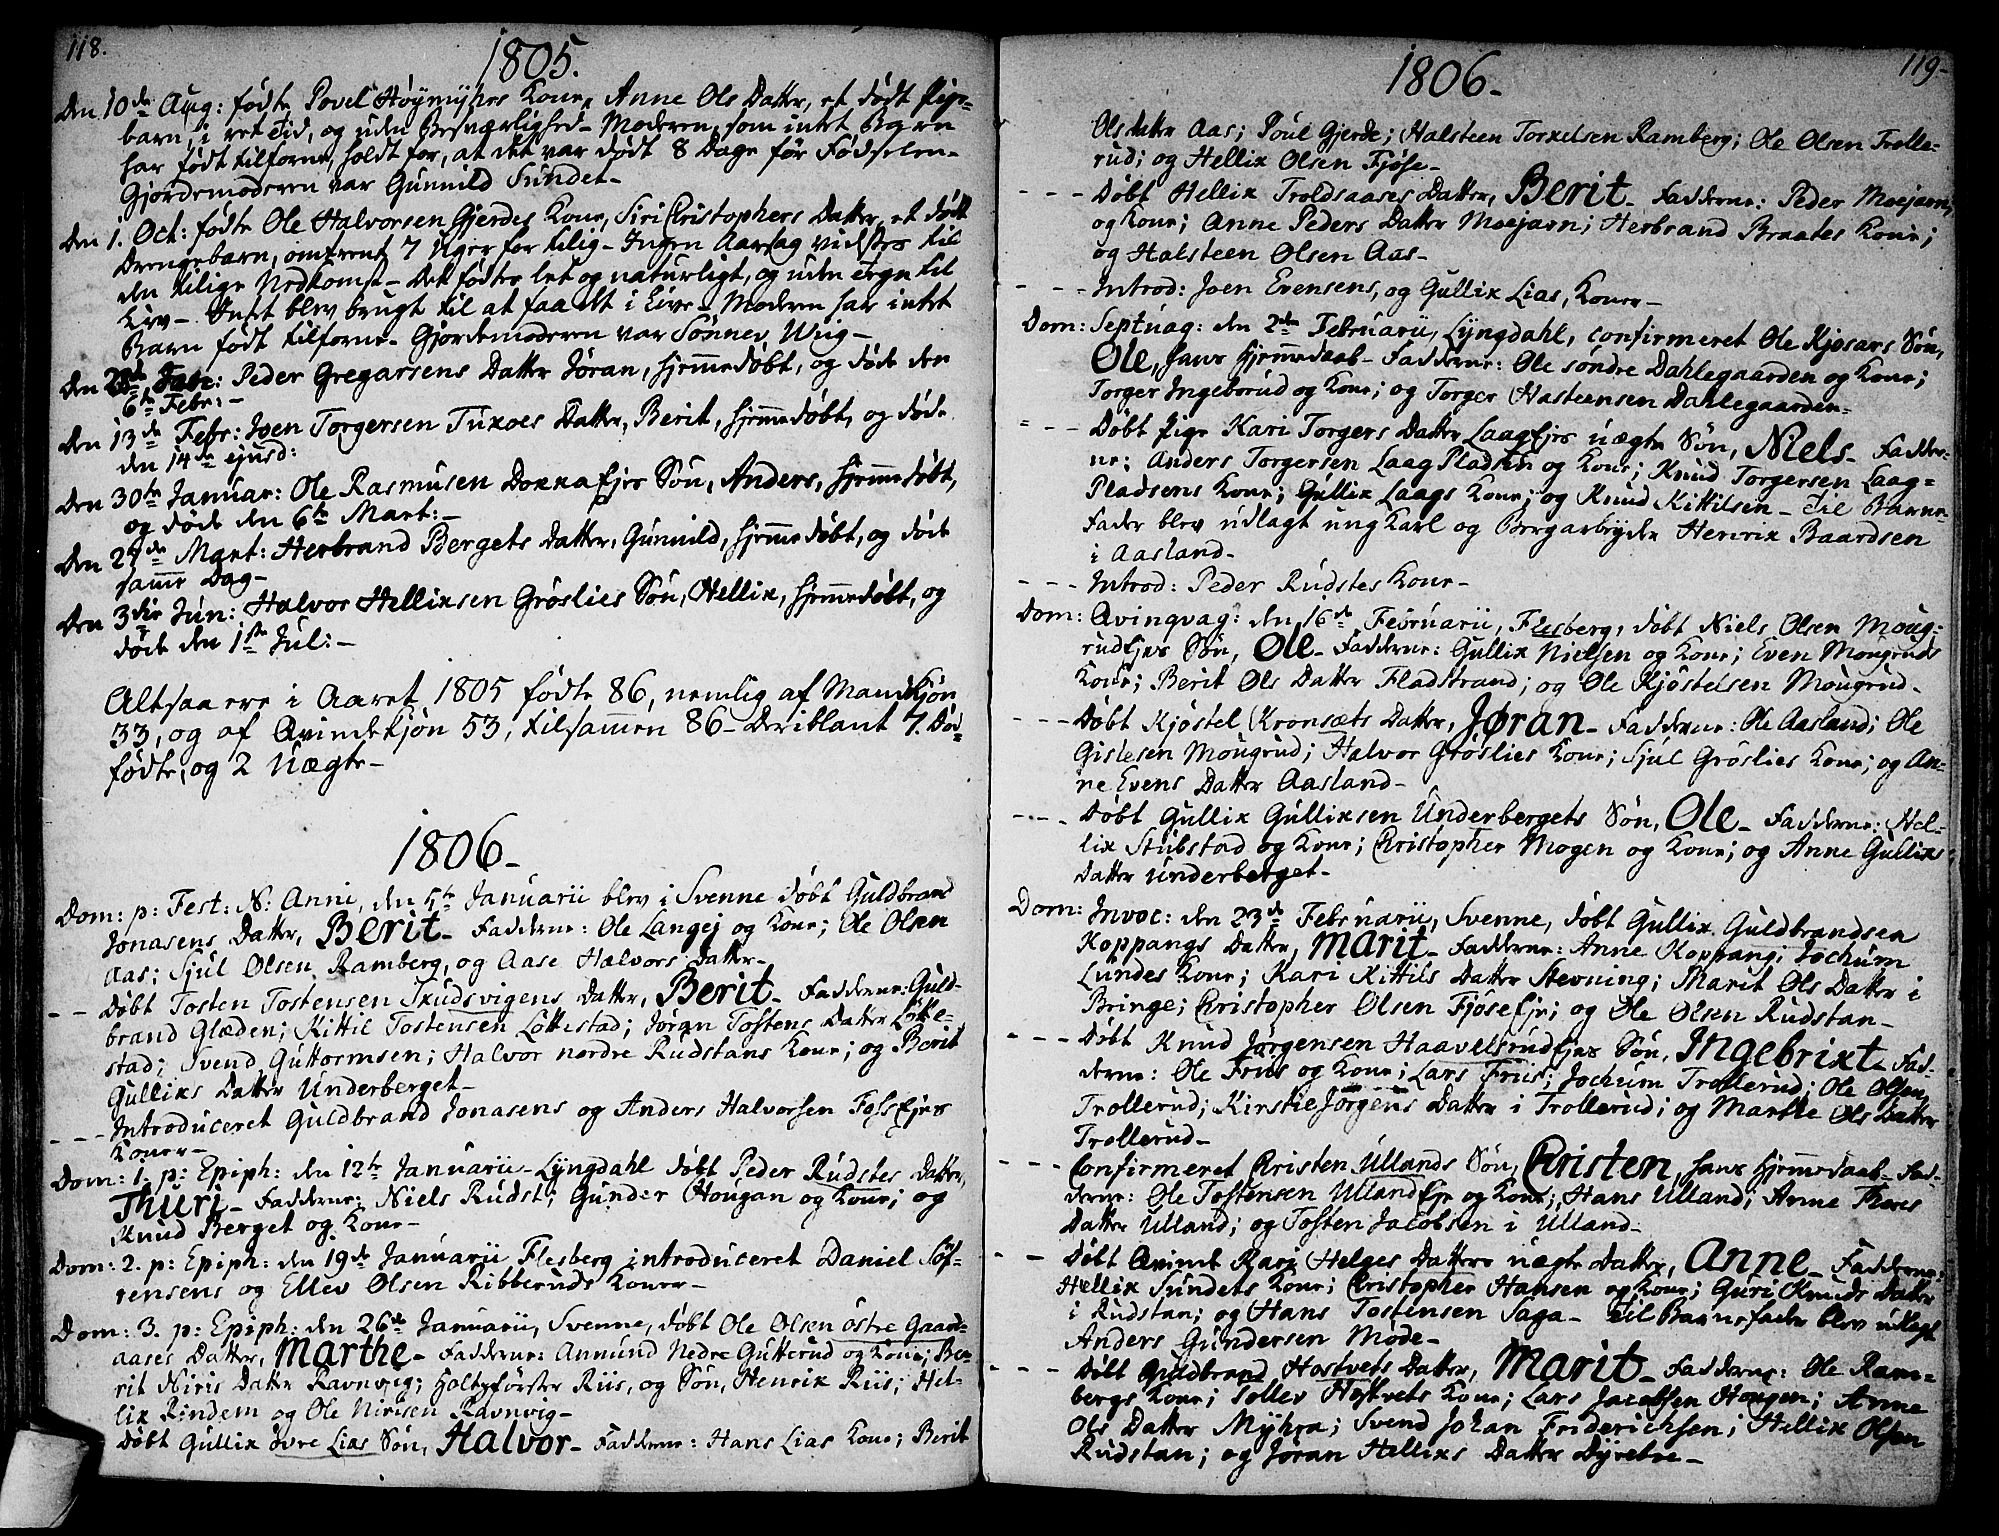 118.
1805.
Den 10de Aug: fødte Povel Høymyhrs Kone, Anne Ols Datter, et dødt Pige-
barn, i ret Tid, og uden Besværlighed- Moderen, som intet Barn
har født tilforne, holdt for, at det var dødt 8 Dage før Fødselen-
Gjordemoderen var Gunnild Sundet-
Den 1. Oct: fødte Ole Halvorsen Gjerdes Kone, Siri Christophers Datter, et dødt
Drengebarn, omtrent 7 Uger for tilig- Ingen Aarsag vidstes til
den tilige Nedkomst- Det fødtes let og naturligt, og uden Tegn til
Liv- Intet blev brugt til at faa det i Live- Moderen har intet
Barn født tilforne- Gjordemoderen var Sønnev Wiig-
Den Peder Gregarsens Datter Jøran, hjemmedøbt, og døde den
6te Febr:-
Den 13de Febr: Joen Torgersen Tuxoes Datter, Berit, hjemmedøbt, og døde
den 14de ejusd:
Den 30te Januar: Ole Rasmusen Dokka Ejes Søn, Anders, hjemmedøbt,
og døde den 6te Mart:-
Den 27de Mart: Herbrand Bergets Datter, Gunnild, hjemmedøbt, og døde
samme Dag-
Den 3die Jun: Halvor Hellixsen Grøslies Søn, Hellix, hjemmedøbt, og
døde den 1ste Jul:-
Altsaa ere i Aaret 1805 fødte 86, nemlig af Mandkjøn
33, og af Qvindekjøn 53, tilsammen 86- Deriblant 7. Død-
fødte, og 2 Uægte-
1806-
Dom: p: Fest: N: Anni, den 5te Januarii blev i Svenne døbt Guldbrand
Jonasens Datter, Berit- Fadderne: Ole Langej og Kone; Ole Olsen
Aas; Sjul Olsen Ramberg, og Aase Halvors Datter-
- - Døbt Tosten Tostensen Skudsvigens Datter, Berit- Fadderne: Guld-
brand Glæden; Kittil Tostensen Løttestad; Jøran Tostens Datter Løtte-
stad; Svend Guttormsen; Halvor nordre Rudstans Kone; og Berit
Gullixs Datter Underberget-
- - - Introduceret Guldbrand Jonasens og Anders Halvorsen Foss Ejes
Koner-
Dom: 1. p: Epiph: den 12te Januarii- Lyngdahl døbt Peder Rudstes Datter,
Thuri- Fadderne: Niels Rudst; Gunder Hougan og Kone; og
Knud Berget og Kone-
Dom: 2. p: Epiph: den 19de Januarii Flesberg introduceret Daniel Søf-
rensens og Ellev Olsen Ribberuds Koner-
Dom: 3. p: Epiph: den 26de Januarii, Svenne, døbt Ole Olsen østre Gaard-
aases Datter, Marthe- Fadderne: Anmund Nedre Gutterud og Kone; Be-
rit Niris Datter Ravnvig; Holtzførster Riis, og Søn, Henrik Riis; Hel-
lix Rindem og Ole Nirisen Ravnvig-
Døbt Gullix øvre Lias Søn, Halvor- Fadderne: Hans Lias Kone; Berit
119-
1806-
Olsdatter Aas; Poul Gjerde; Halsteen Torkelsen Ramberg; Ole Olsen Trolle-
rud; og Hellix Olsen Fjøse-
- - - Døbt Hellix Troldsaases Datter, Berit- Fadderne: Peder Moejavn,
og Kone; Anne Peders Datter Moejavn; Herbrand Braates Kone;
og Halsteen Olsen Aas-
- - - Introd: Joen Evensens, og Gullix Lias, Koner-
Dom: Septuag: den 2den Februarii, Lyngdahl, confirmeret Ole Kjosars Søn,
Ole, hans Hjemmedaab- Fadderne: Ole søndre Dahlegaarden og Kone;
Torger Ingeborud og Kone; og Torger Hasteensen Dahlegaarden-
- - - Døbt Pige Kari Torgers Datter Laag Ejes uægte Søn, Niels- Fadder-
ne: Anders Torgersen Laag Pladsen og Kone; Knud Torgersen Laag-
Pladsens Kone; Gullix Laags Kone; og Knud Kittilsen- Til Barne-
Fader blev udlagt ungKarl og Bergarbejder Henrik Baardsen
i Aasland-
- - - Introd: Peder Rudstes Kone-
Dom: Qvinqvag: den 16de Februarii, Flesberg, døbt Niels Olsen Moug-
rudEjes Søn, Ole- Fadderne: Gullix Nielsen og Kone; Even Mougruds
Kone; Berit Ols Datter Fladstrand; og Ole Kjøstelsen Mougrud-
- - - Døbt Kjøstel Kronsæts Datter, Jøran- Fadderne: Ole Aasland; Ole
Gislesen Mougrud; Halvor Grøslies Kone; Sjul Grøslies Kone; og An-
ne Evens Datter Aasland-
- - - Døbt Gullix Gullixsen Underbergets Søn, Ole- Fadderne: Hel-
lix Stubstad og Kone; Christopher Mogen og Kone; og Anne Gullixs
Datter Underberget-
Dom: Invoc: den 23de Februarii, Svenne, døbt Gullix Guldbrandsen
Koppangs Datter, Marit- Fadderne: Anne Koppang; Jochum
Lundes Kone; Kari Kittils Datter Stevning; Marit Ols Datter i
Bringe; Christopher Olsen FjøseEje; og Ole Olsen Rudstan-
- - - Døbt Knud Jørgensen HaavelsrudEjes Søn, Ingebrixt- Fad-
derne: Ole Friis og Kone; Lars Friis; Jochum Trollerud; Ole Olsen
Trollerud; Kirstie Jørgens Datter i Trollerud; og Marthe Ols Datter
Trollerud-
- - - Confirmeret Christen Ullands Søn, Christen, hans Hjemmedaab- Fad-
derne: Ole Tostensen UllandEje og Kone; Hans Ulland; Anne Thores
Datter Ulland; og Tosten Jacobsen i Ulland-
- - Døbt Qvinde Kari Helges Datters uægte Datter, Anne- Fadderne:
Hellix Sundets Kone; Christopher Hansen og Kone; Guri Knuds Datter
i Rudstan; og Hans Tostensen Saga- Til Barnefader blev udlagt
Anders Gundersen Mode-
- - - Døbt Guldbrand Hostvets Datter, Marit- Fadderne: Ole Ram-
bergs Kone; Tollev Hostvets Kone; Lars Jacobsen Hougen; Anne
Ols Datter Myhra; Svend Johan Friderichsen; Hellix Olsen
Rudstan; og Jøran Hellixs Datter Dyretoe-